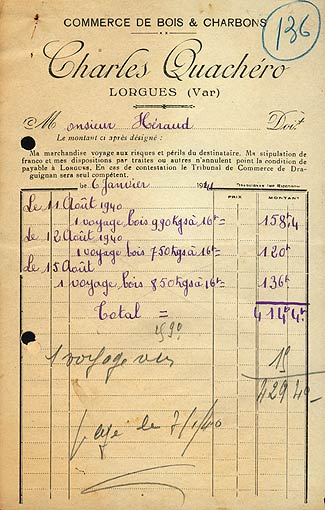 COMMERCE DE BOIS & CHARBONS
136
Charles Quachéro
LORGUES (Var)
Monsieur Héraud Doit
Le montant ci après désigné :
Ma marchandise voyage aux risques et périls du destinataire, Ma stipulation de
franco et mes dispositions par traites ou autres n'annulent point la condition de
payable à LORGUES, En cas de contestation le Tribunal de Commerce de Dra-
guignan sera seul compétent.
Le 6 Janvier 1941
PRIX MONTANT
Le 11 Août 1940
1 voyage bois 990 kgs à 16f = 158f4
Le 12 Août 1940
1 voyage bois 750 kgs à 16f = 120f
Le 15 Août
1 voyage bois 850 kgs à 16f = 136f
Total = 414f4
1 voyage 15
429 40
payé le 7/1/40